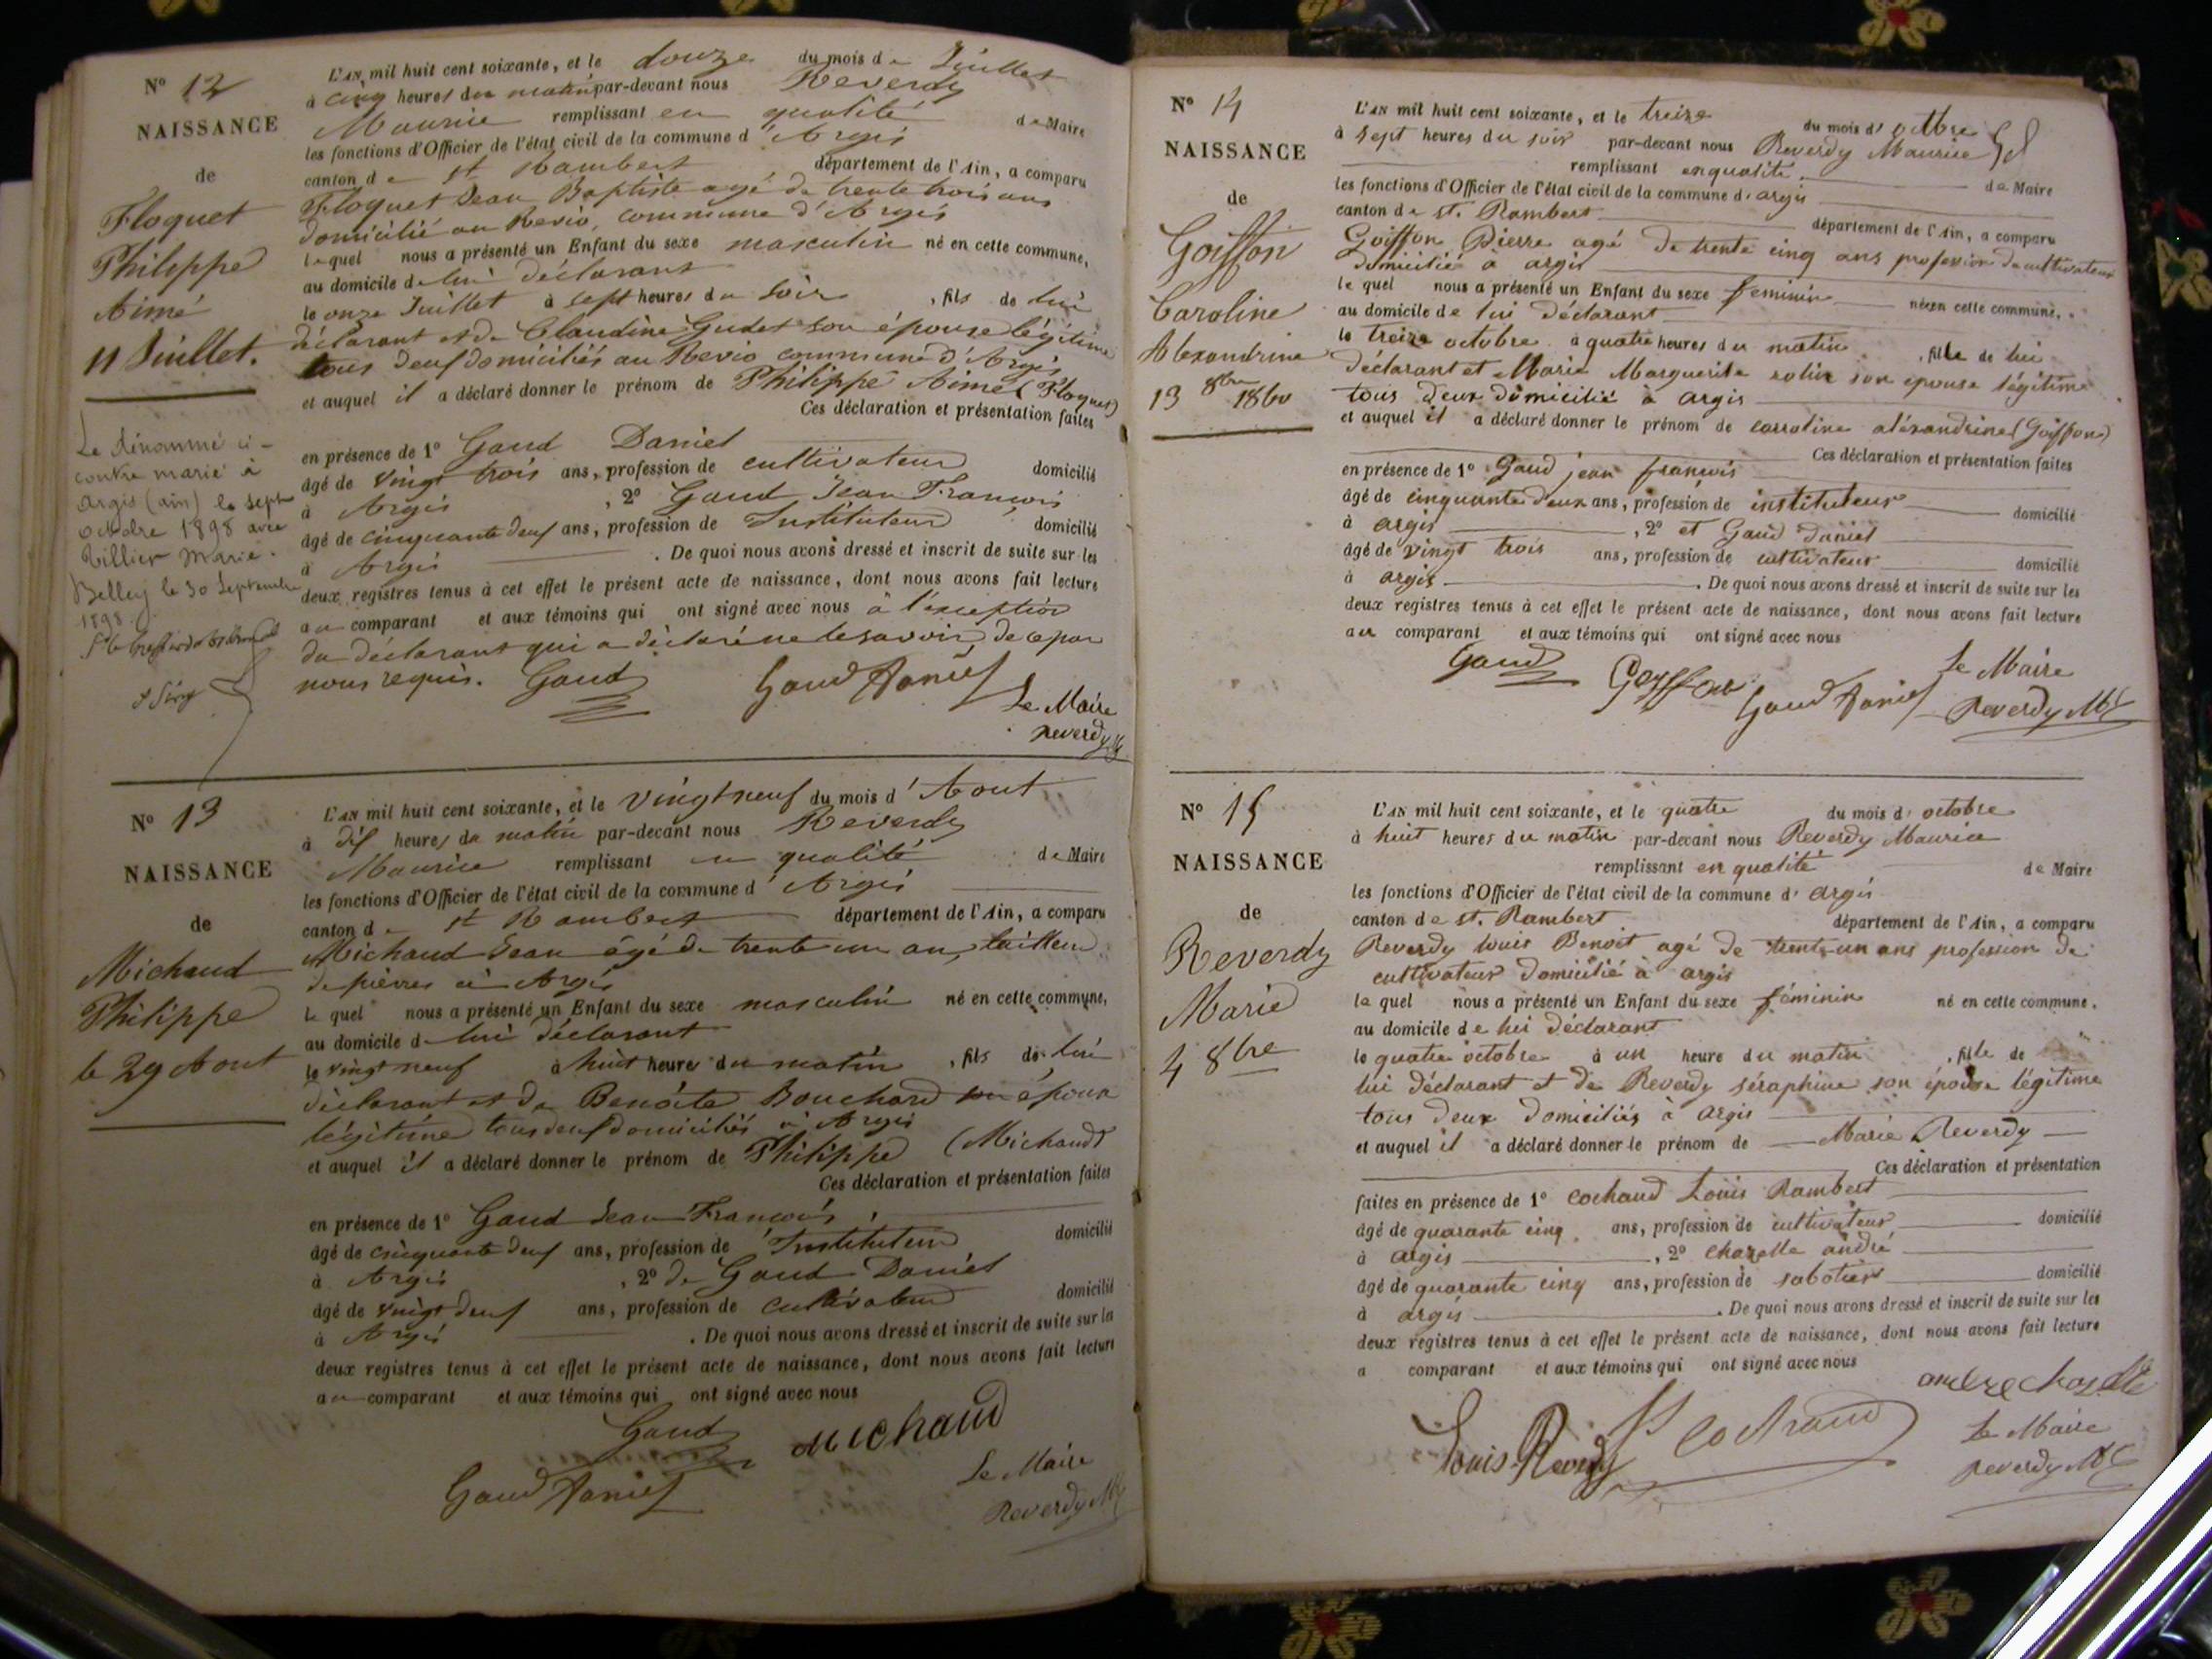 N° 12
NAISSANCE
de
Floquet
Philippe
Aimé
11 Juillet.
Le dénommé ci-
contre marié à
Argis (ain) le sept
octobre 1898 avec
Billier Marie.
Belley le 30 Septembre
1898
L'AN mil huit cent soixante, et le douze du mois de Juillet
à cinq heures du matin par-devant nous Reverdy
Maurice remplissant en qualité de Maire
les fonctions d'Officier de l'état civil de la commune d'Argis
canton de st Rambert département de l'Ain, a comparu
Floquet Jean Baptiste agé de trente trois ans
domicilié au Revio, commune d'Argis
lequel nous a présenté un Enfant du sexe masculin né en cette commune,
au domicile de lui déclarant
le onze Juillet à sept heures du soir, fils de lui
déclarant et de Claudine Gudet son épouse légitime
tous deux domiciliés au Revio commune d'Argis
et auquel il a déclaré donner le prénom de Philippe Aimé (Floquet)
Ces déclaration et présentation faites
en présence de 1° Gaud Daniel
âgé de vingt trois ans, profession de cultivateur domicilié
à Argis, 2° Gaud Jean François
âgé de cinquante deux ans, profession de Instituteur domicilié
à Argis. De quoi nous avons dressé et inscrit de suite sur les
deux registres tenus à cet effet le présent acte de naissance, dont nous avons fait lecture
au comparant et aux témoins qui ont signé avec nous à l'exception
du déclarant qui a déclaré ne le savoir de ce par
nous requis. Gaud Gaud Daniel
Le Maire
Reverdy
N° 13
NAISSANCE
de
Michaud
Philippe
le 29 Aout
L'AN mil huit cent soixante, et le vingt neuf du mois d'Aout
à dix heures du matin par-devant nous Reverdy
Maurice remplissant en qualité de Maire
les fonctions d'Officier de l'état civil de la commune d'Argis
canton de st Rambert département de l'Ain, a comparu
Michaud Jean âgé de trente un an, tailleur
de pierres à Argis
le quel nous a présenté un Enfant du sexe masculin né en cette commune,
au domicile de lui déclarant
le vingt neuf à huit heure du matin, fils de lui
déclarant et de Benoite Bouchard son épouse
légitime tous deux domiciliés à Argis
et auquel il a déclaré donner le prénom de Philippe (Michaud)
Ces déclaration et présentation faites
en présence de 1° Gaud Jean François,
âgé de cinquante deux ans, profession de Instituteur domicilié
à Argis, 2° de Gaud Daniel
âgé de vingt deux ans, profession de cultivateur domicilié
à Argis. De quoi nous avons dressé et inscrit de suite sur les
deux registres tenus à cet effet le présent acte de naissance, dont nous avons fait lecture
au comparant et aux témoins qui ont signé avec nous
Gaud Michaud
Gaud Daniel
Le Maire
Reverdy
N° 14
NAISSANCE
de
Goiffon
Caroline
Alexandrine
13 8bre 1860
L'AN mil huit cent soixante, et le treize du mois d'octobre
à sept heures du soir par-devant nous Reverdy Maurice
remplissant en qualité de Maire
les fonctions d'Officier de l'état civil de la commune d'argis
canton de st. Rambert département de l'Ain, a comparu
Goiffon Pierre agé de trente cinq ans profession de cultivateur
domicilié a argis
le quel nous a présenté un Enfant du sexe feminin né en cette commune,
au domicile de lui déclarant
le treize octobre à quatre heures du matin, fille de lui
déclarant et Marie Marguerite rolin son epouse légitime
tous deux domicilié à argis
et auquel il a déclaré donner le prénom de carroline aléxandrine (Goiffon)
Ces déclaration et présentation faites
en présence de 1° Gaud jean françois
âgé de cinquante deux ans, profession de instituteur domicilié
à argis, 2° et Gaud Daniel
âgé de vingt trois ans, profession de cultivateur domicilié
à argis. De quoi nous avons dressé et inscrit de suite sur les
deux registres tenus à cet effet le présent acte de naissance, dont nous avons fait lecture
au comparant et aux témoins qui ont signé avec nous
Gaud Goyffon Gaud Daniel
Le Maire
Reverdy
N° 15
NAISSANCE
de
Reverdy
Marie
4 8bre
L'AN mil huit cent soixante, et le quatre du mois d'octobre
à huit heures du matin par-devant nous Reverdy Maurice
remplissant en qualité de Maire
les fonctions d'Officier de l'état civil de la commune d'argis
canton de st. Rambert département de l'Ain, a comparu
Reverdy louis Benoit agé de trente-un ans profession de
cultivateur domicilié à argis
le quel nous a présenté un Enfant du sexe féminin né en cette commune,
au domicile de lui déclarant
le quatre octobre à un heure du matin, fille de
lui déclarant et de Reverdy séraphine son épouse légitime
tous deux domiciliés à argis
et auquel il a déclaré donner le prénom de Marie Reverdy
Ces déclaration et présentation
faites en présence de 1° cochaud Louis Rambert
âgé de quarante cinq ans, profession de cultivateur domicilié
à argis, 2° chazelle andré
âgé de quarante cinq ans, profession de sabotier domicilié
à argis. De quoi nous avons dressé et inscrit de suite sur les
deux registres tenus à cet effet le présent acte de naissance, dont nous avons fait lecture
a comparant et aux témoins qui ont signé avec nous
andre chazelle
Louis Reverdy Cochaud
Le Maire
Reverdy